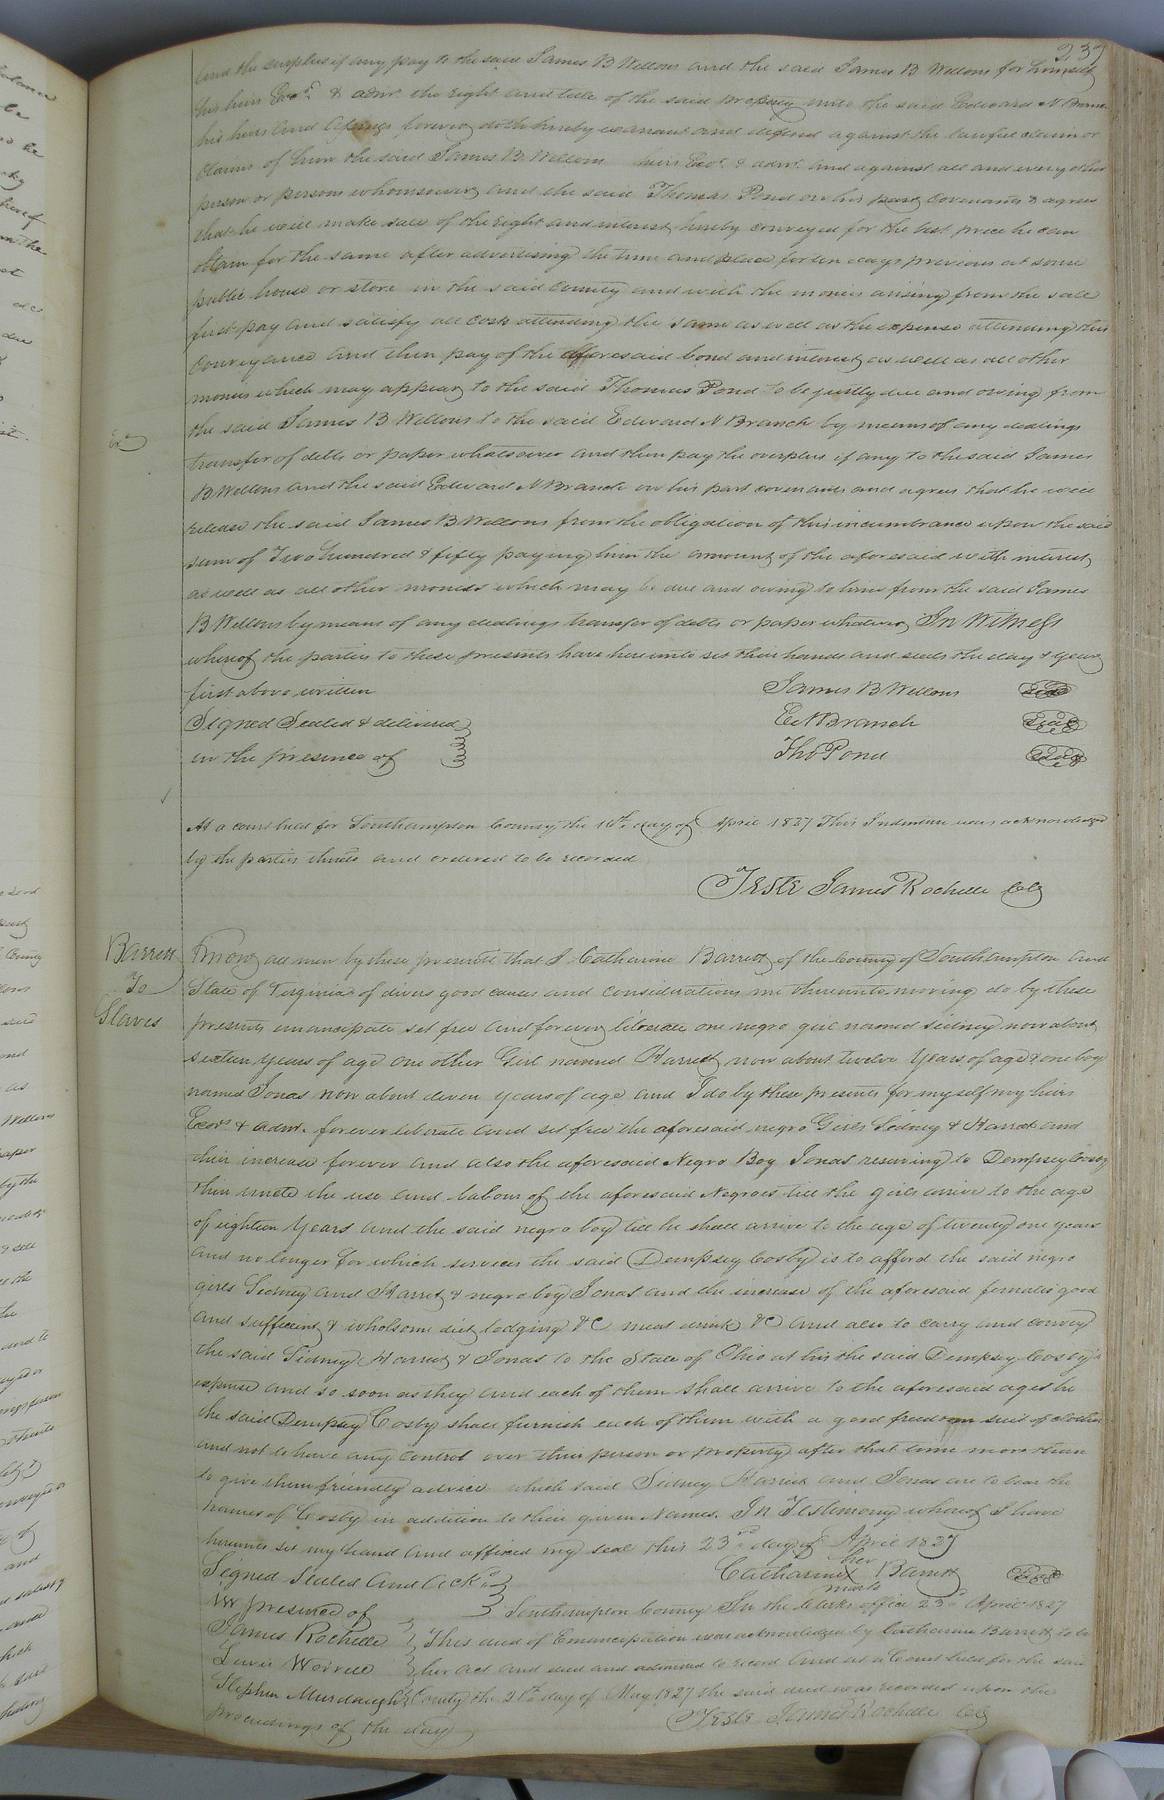 237
and the surplus if any pay to the said James B Wellons and the said James B Wellons for himself
his heirs Exors. & admr. the right and title of the said property unto the said Edward N. Branch
his heirs and assigns forever doth hereby warrant and defend against the lawful claim or
claims of him the said James B. Wellons heirs Exor. & admr. and against all and every other
person or persons whomsoever and the said Thomas Pond on his part covenants & agrees
that he will make sale of the right and interest hereby conveyed for the best price he can
obtain for the same after advertising the time and place for ten days previous at some
public house or store in the said county and with the monies arising from the sale
first pay and satisfy all costs attending the same as well as the expense attending this
conveyance and then pay of the afforesaid bond and interest as well as all other
monies which may appear to the said Thomas Pond to be justly due and owing from
the said James B Wellons to the said Edward N Branch by means of any dealings
transfer of debts or paper whatsoever and then pay the overplus if any to the said James
B Wellons and the said Edward N Branch on his part covenants and agrees that he will
release the said James B Wellons from the obligation of this incumbrance upon the said
sum of Two hundred & fifty paying him the amount of the aforesaid with interest
as well as all other monies which may be due and owing to him from the said James
B Wellons by means of any dealings transfer of debts or paper whatever In Witness
whereof the parties to these presents have hereunto set their hands and seals the day & year
first above written James B Wellons Seal
Signed Sealed & delivered E N Branch Seal
in the presence of Tho Pond Seal
At a court held for Southampton County the 16th. day of April 1827 This Indenture was acknowledged
by the parties thereto and ordered to be recorded
Teste James Rochelle
Barrett
To
Slaves
Know all men by these presents that I Catharine Barrett of the County of Southampton and
State of Virginia of divers good causes and considerations me thereunto moving do by these
presents emancipate set free and forever liberate one negro girl named Sidney now about
sixteen years of age one other Girl named Harriett now about twelve years of age & one boy
named Jonas now about eleven years of age and I do by these presents for myself my heirs
Exors & admr. forever liberate and set free the aforesaid negro Girls Sidney & Harriet and
their increase forever and also the aforesaid Negro Boy Jonas reserving to Dempsey Cosby
their uncle the use and labour of the aforesaid Negroes till the girls arrive to the age
of eighteen years and the said negro boy till he shall arrive to the age of twenty one years
and no longer for which services the said Dempsey Cosby is to afford the said negro
girls Sidney and Harriet & negro boy Jonas and the increase of the aforesaid females good
and sufficient & wholsome diet lodging &C meat drink &C and also to carry and convey
the said Sidney Harriet & Jonas to the State of Ohio at his the said Dempsey Cosby's
expense and so soon as they and each of them shall arrive to the aforesaid ages he
the said Dempsey Cosby shall furnish each of them with a good freedom suit of clothes
and not to have any control over their person or property after that time more than
to give them friendly advice which said Sidney Harriet and Jonas are to bear the
names of Cosby in addition to their given Names. In Testimony whereof I have
hereunto set my hand and affixed my seal this 23rd day of April 1827
Signed Sealed and Ackd. Catharine her X mark Barrett Seal
in presence of Southampton County In the Clerks office 23d April 1827
James Rochelle This deed of Emancipation was acknowledged by Catharine Barrett to be
Lewis Worrell her act and deed and admitted to record And at a Court held for the said
Stephen Murdaugh County the 21st day of May 1827 the said deed was recorded upon the
proceedings of the day Teste James Rochelle